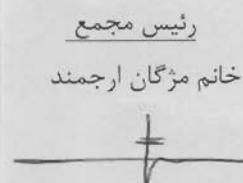 رئیس مجمع
خانم مژگان ارجمند